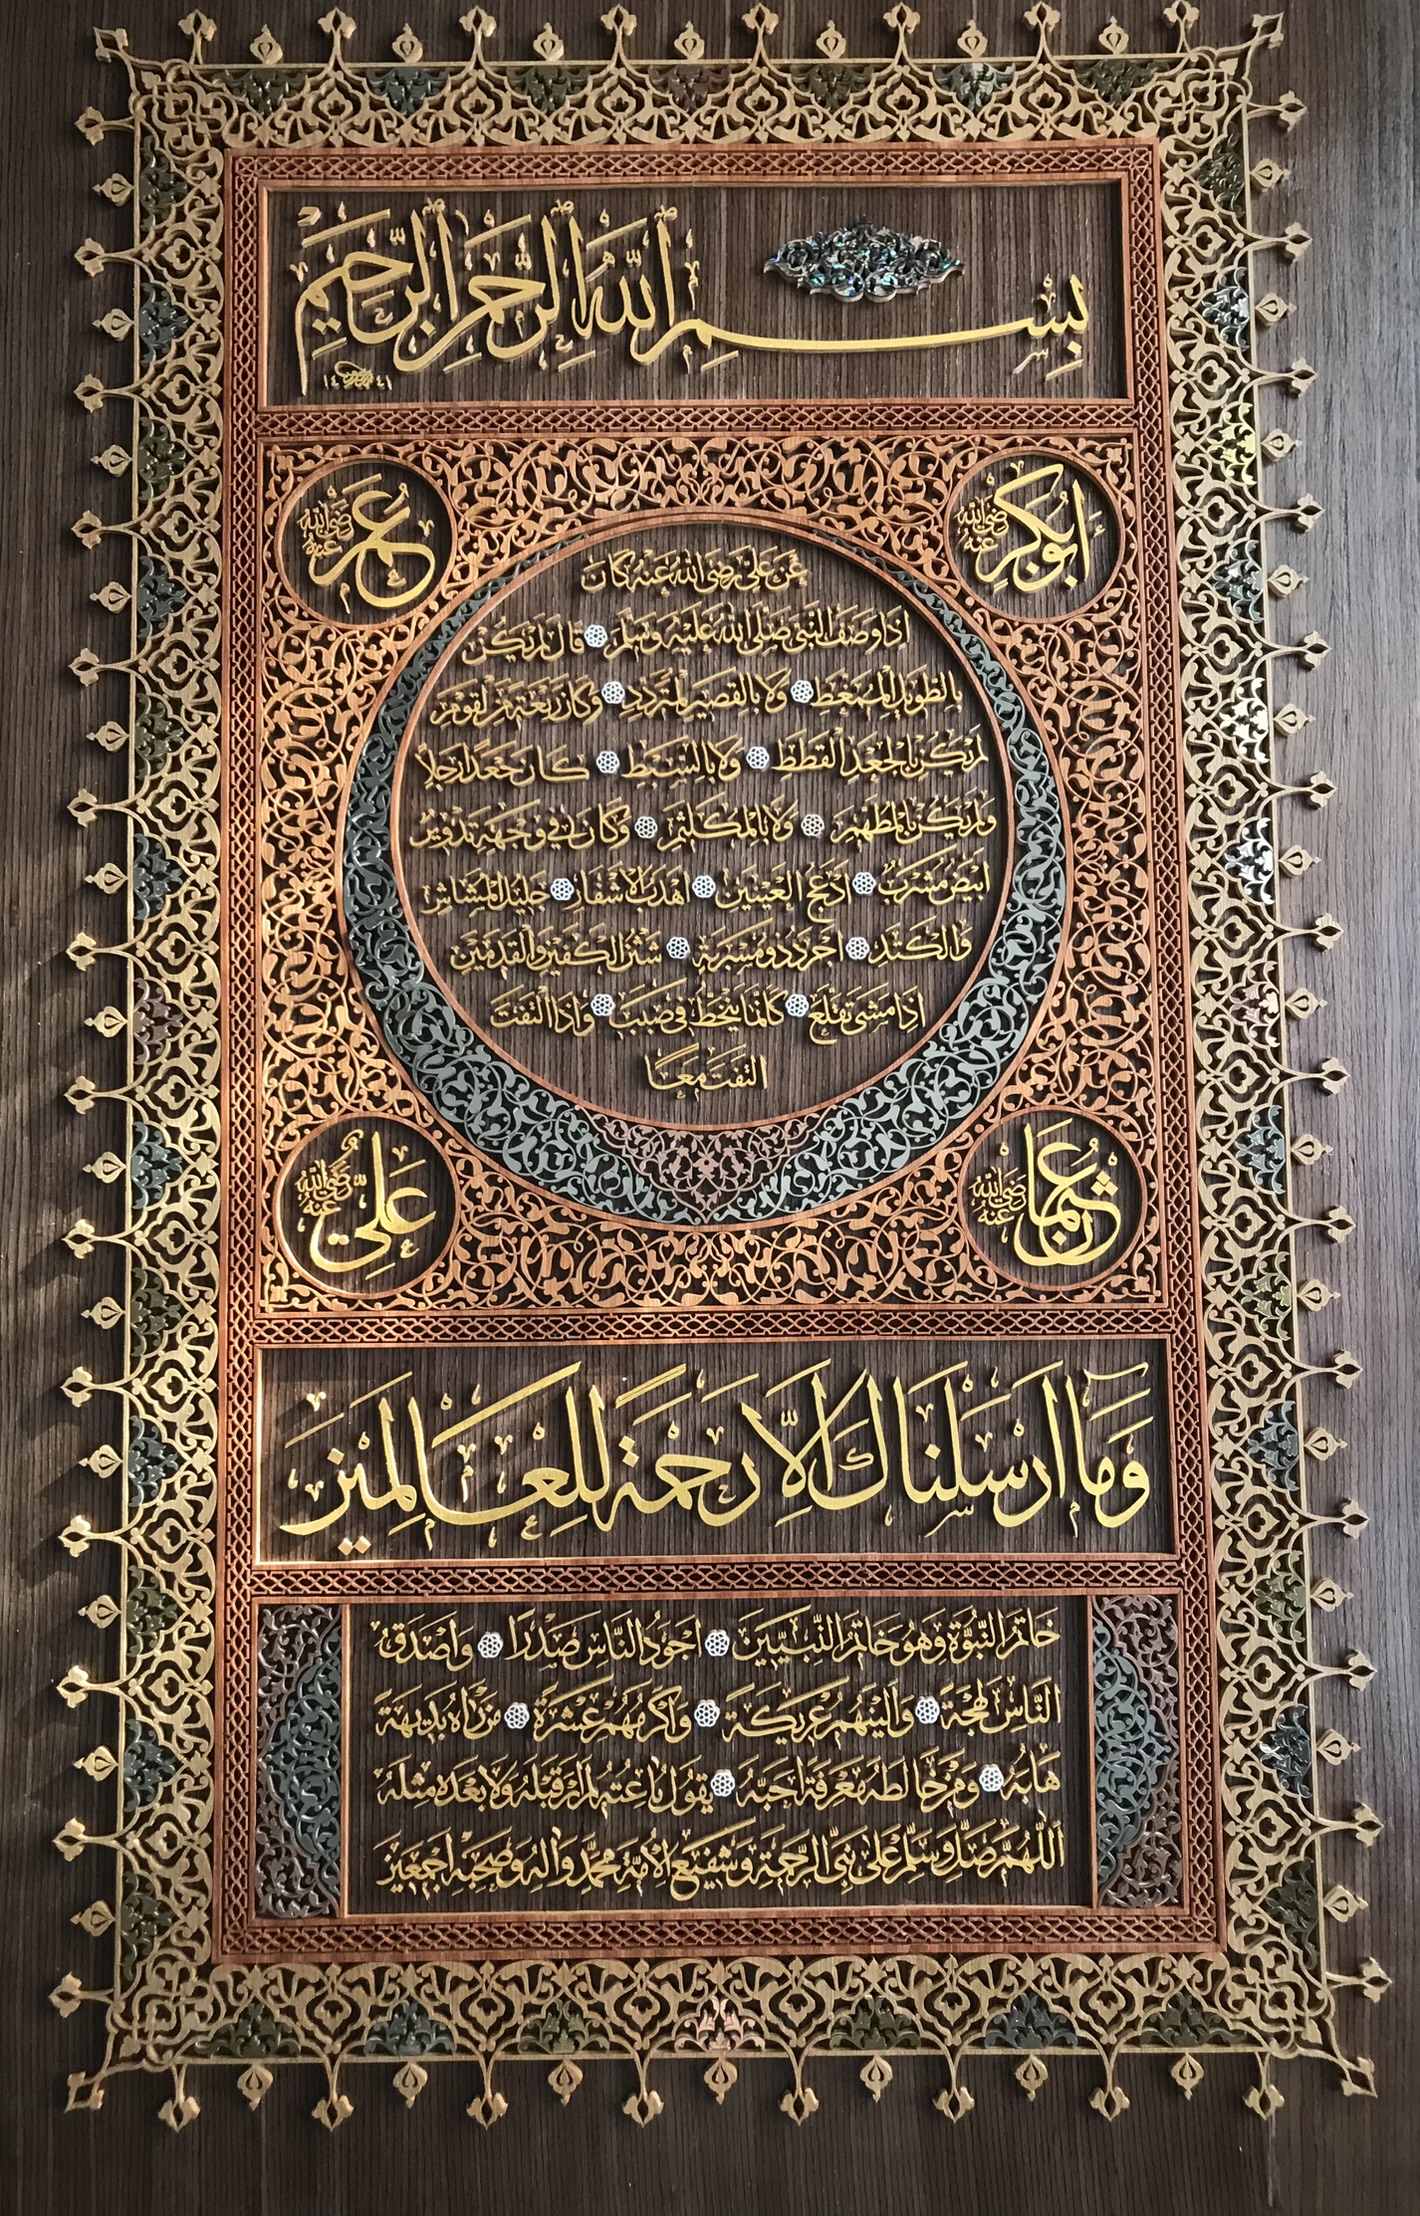 بِسْمِ اللّٰهِ الرَّحْمٰنِ الرَّحِيمِ
١٤٤١
اَبُوبَكْرٍ رَضِيَ اللّٰهُ عَنْهُ
عُمَرُ رَضِيَ اللّٰهُ عَنْهُ
عَنْ عَلِيٍّ رَضِيَ اللّٰهُ عَنْهُ كَانَ
اِذَا وَصَفَ النَّبِيَّ صَلَّى اللّٰهُ عَلَيْهِ وَسَلَّمَ قَالَ لَمْ يَكُنْ
بِالطَّوِيلِ الْمُمَغَّطِ وَلَا بِالْقَصِيرِ الْمُتَرَدِّدِ وَكَانَ رَبْعَةً مِنَ الْقَوْمِ
لَمْ يَكُنْ بِالْجَعْدِ الْقَطَطِ وَلَا بِالسَّبْطِ كَانَ جَعْدًا رَجِلًا
وَلَمْ يَكُنْ بِالْمُطَهَّمِ وَلَا بِالْمُكَلْثَمِ وَكَانَ فِي وَجْهِهِ تَدْوِيرٌ
اَبْيَضُ مُشْرَبٌ اَدْعَجُ الْعَيْنَيْنِ اَهْدَبُ الْاَشْفَارِ جَلِيلُ الْمُشَاشِ
وَالْكَتَدِ اَجْرَدُ ذُو مَسْرُبَةٍ شَثْنُ الْكَفَّيْنِ وَالْقَدَمَيْنِ
اِذَا مَشَى تَقَلَّعَ كَاَنَّمَا يَنْحَطُّ فِي صَبَبٍ وَاِذَا الْتَفَتَ
الْتَفَتَ مَعًا
عُثْمَانُ رَضِيَ اللّٰهُ عَنْهُ
عَلِيٌّ رَضِيَ اللّٰهُ عَنْهُ
وَمَا اَرْسَلْنَاكَ اِلَّا رَحْمَةً لِلْعَالَمِينَ
خَاتَمُ النُّبُوَّةِ وَهُوَ خَاتَمُ النَّبِيِّينَ اَجْوَدُ النَّاسِ صَدْرًا وَاَصْدَقُ
النَّاسِ لَهْجَةً وَاَلْيَنُهُمْ عَرِيكَةً وَاَكْرَمُهُمْ عِشْرَةً مَنْ رَآهُ بَدِيهَةً
هَابَهُ وَمَنْ خَالَطَهُ مَعْرِفَةً اَحَبَّهُ يَقُولُ نَاعِتُهُ لَمْ اَرَ قَبْلَهُ وَلَا بَعْدَهُ مِثْلَهُ
اَللّٰهُمَّ صَلِّ وَسَلِّمْ عَلَى نَبِيِّ الرَّحْمَةِ وَشَفِيعِ الْاُمَّةِ مُحَمَّدٍ وَآلِهِ وَصَحْبِهِ اَجْمَعِينَ